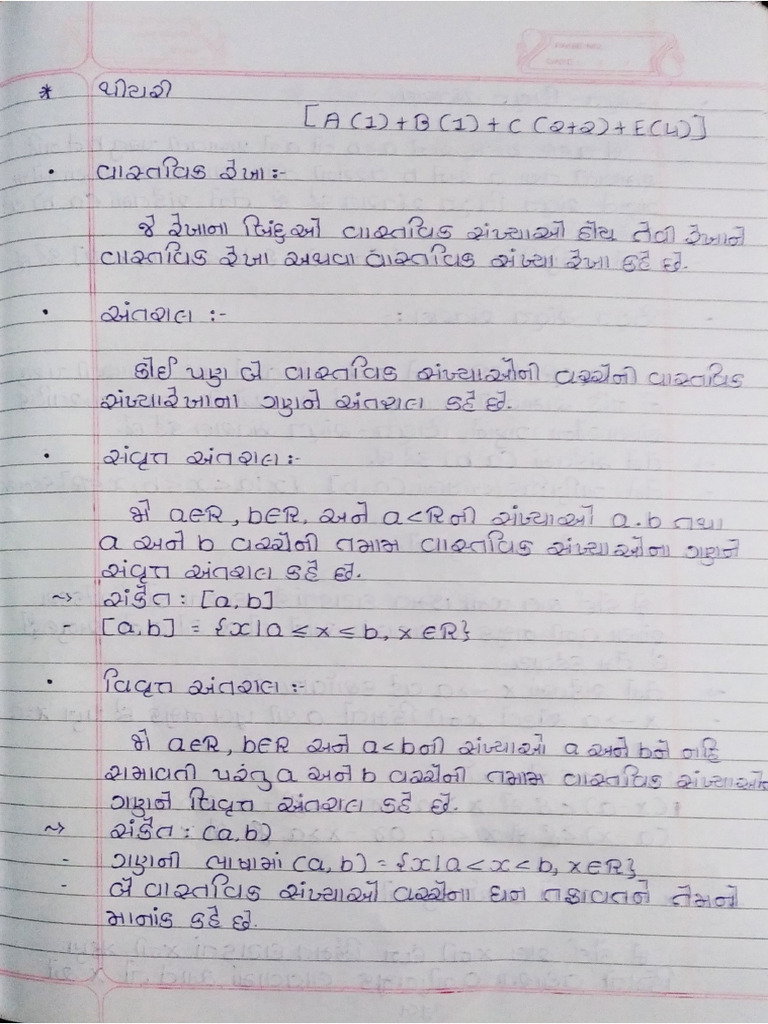 * થીયરી
[A(1)+B(1)+C(2+2)+E(4)]
• વાસ્તવિક રેખા :-
જે રેખાના બિંદુઓ વાસ્તવિક સંખ્યાઓ હોય તેવી રેખાને
વાસ્તવિક રેખા અથવા વાસ્તવિક સંખ્યા રેખા કહે છે.
• અંતરાલ :-
કોઈ પણ બે વાસ્તવિક સંખ્યાઓની વચ્ચેની વાસ્તવિક
સંખ્યારેખાના ગણને અંતરાલ કહે છે.
• સંવૃત્ત અંતરાલ :-
જો a∈R, b∈R, અને a<Rની સંખ્યાઓ a.b તથા
a અને b વચ્ચેની તમામ વાસ્તવિક સંખ્યાઓના ગણને
સંવૃત્ત અંતરાલ કહે છે.
~> સંકેત : [a,b]
- [a,b] = {x|a ≤ x ≤ b, x ∈R}
• વિવૃત્ત અંતરાલ :-
જો a∈R, b∈R અને a<bની સંખ્યાઓ a અને bને નહિ
સમાવતી પરંતુ a અને b વચ્ચેની તમામ વાસ્તવિક સંખ્યાઓના
ગણને વિવૃત્ત અંતરાલ કહે છે.
~> સંકેત : (a,b)
- ગણની ભાષામાં (a,b) = {x|a < x < b, x∈R}
- બે વાસ્તવિક સંખ્યાઓ વચ્ચેના ધન તફાવતને તેમનો
માનાંક કહે છે.